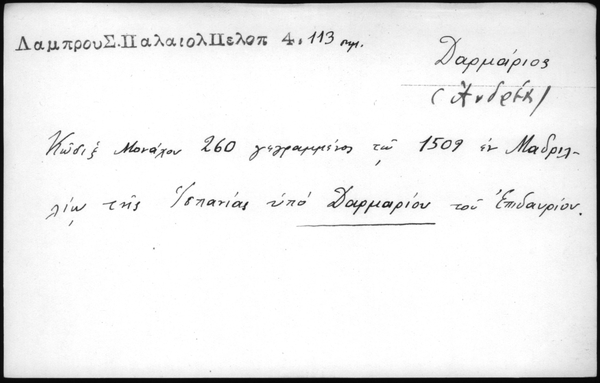 ΛαμπρουΣ.ΠαλαιολΠελοπ 4, 113 σημ.
Δαρμάριος
(Ἀνδρέας)
Κῶδιξ Μονάχου 260 γεγραμμένος τῷ 1509 ἐν Μαδριλ-
λίῳ τῆς Ἱσπανίας ὑπὸ Δαρμαρίου τοῦ Ἐπιδαυρίου.